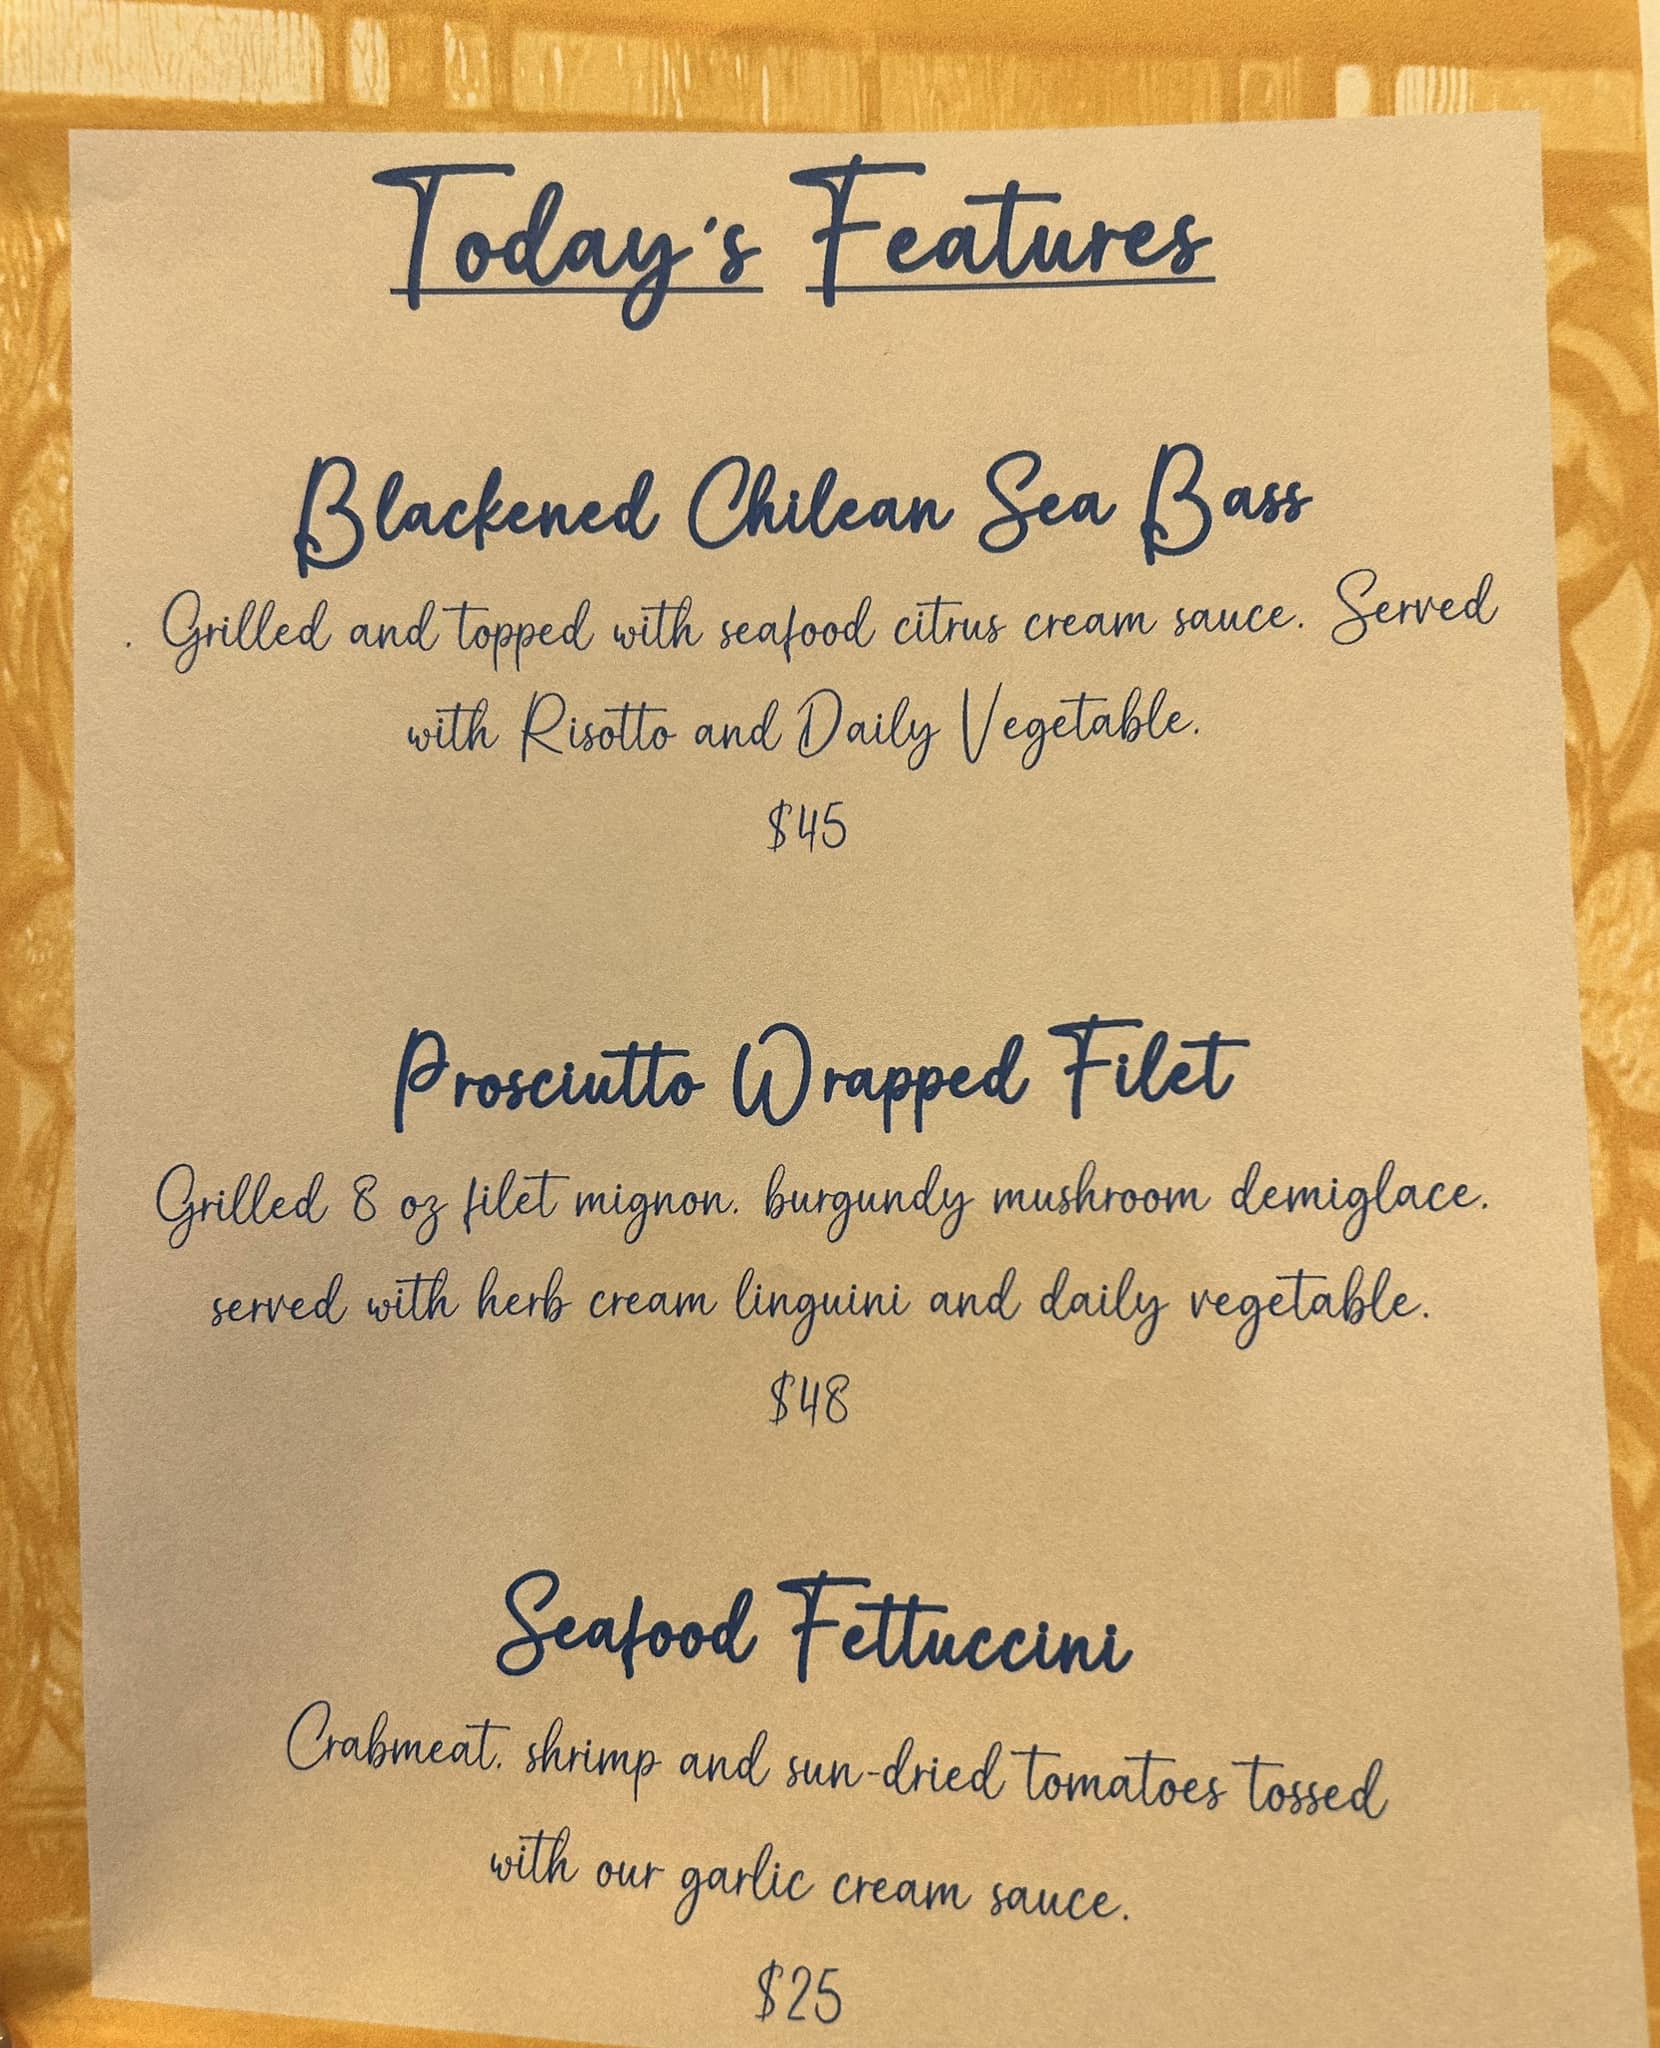 Today's Features
Blackened Chilean Sea Bass
. Grilled and topped with seafood citrus cream sauce. Served
with Risotto and Daily Vegetable.
$45
Prosciutto Wrapped Filet
Grilled 8 oz filet mignon. burgundy mushroom demiglace.
served with herb cream linguini and daily vegetable.
$48
Seafood Fettuccini
Crabmeat. shrimp and sun-dried tomatoes tossed
with our garlic cream sauce.
$25